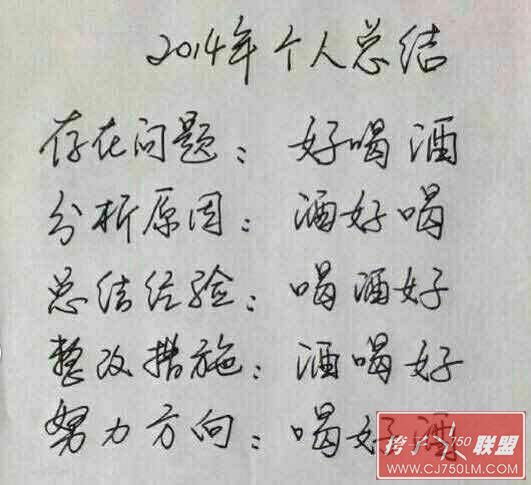 2014年个人总结
存在问题：好喝酒
分析原因：酒好喝
总结经验：喝酒好
整改措施：酒喝好
努力方向：喝好酒
挎子750联盟
WWW.CJ750LM.COM